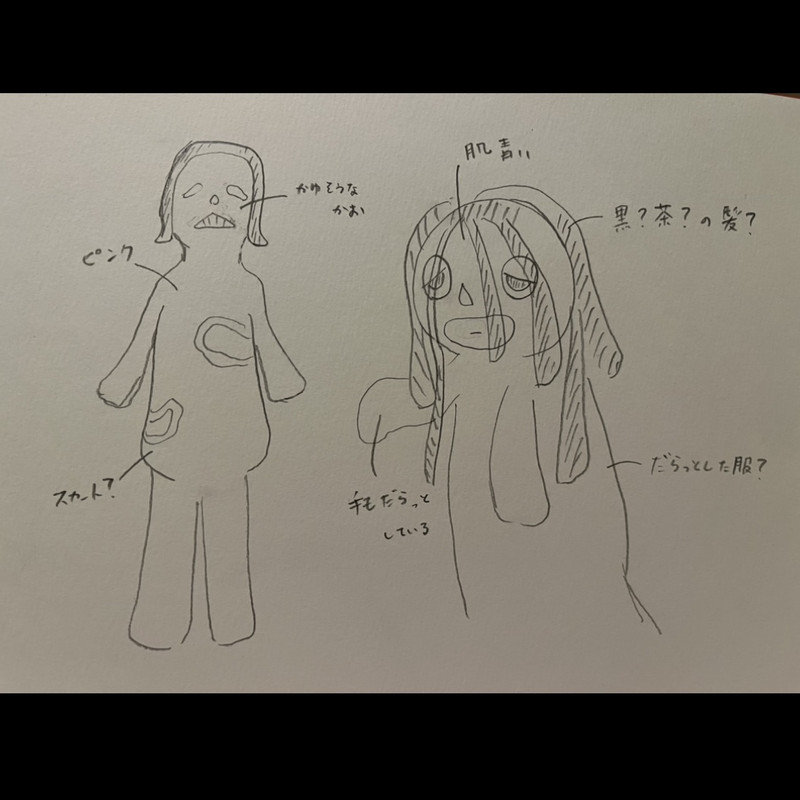 かゆそうな
かお
ピンク
スカート?
肌青い
黒?茶?の髪?
手もだらっと
している
だらっとした服?